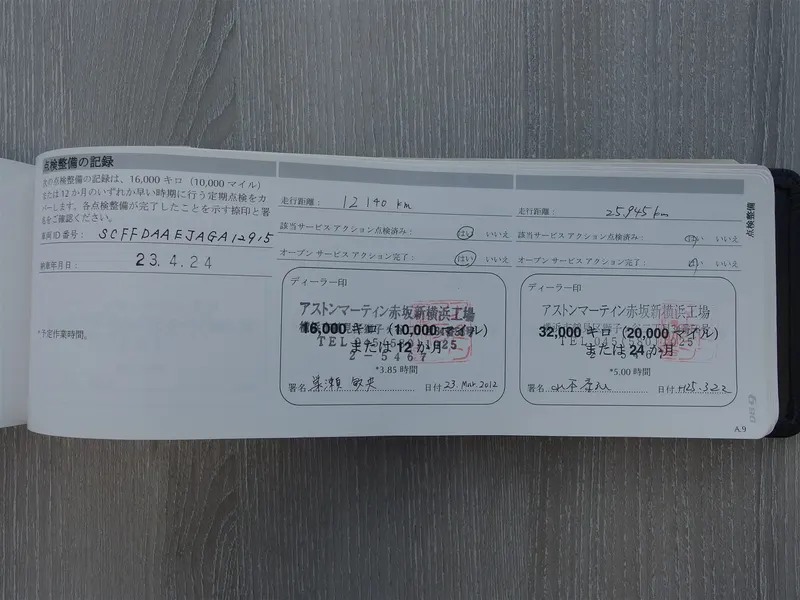 点検整備の記録
次の点検整備の記録は、16,000 キロ（10,000 マイル）
または12か月のいずれか早い時期に行う定期点検をカ
バーします。各点検整備が完了したことを示す捺印と署
名をご確認ください。
車両ID番号： SCFFDAAEJAGA12915
納車年月日： 23.4.24
*予定作業時間。
走行距離： 12140 km
該当サービス アクション点検済み： はい いいえ
オープン サービス アクション完了： はい いいえ
ディーラー印
アストンマーティン赤坂新横浜工場
16,000 キロ（10,000 マイル）
または 12 か月
*3.85 時間
署名 日付 23. Mar. 2012
走行距離： 25,945 km
該当サービス アクション点検済み： はい いいえ
オープン サービス アクション完了： はい いいえ
ディーラー印
アストンマーティン赤坂新横浜工場
32,000 キロ（20,000 マイル）
または 24 か月
*5.00 時間
署名 日付 H25.3.22
点検整備
A.9